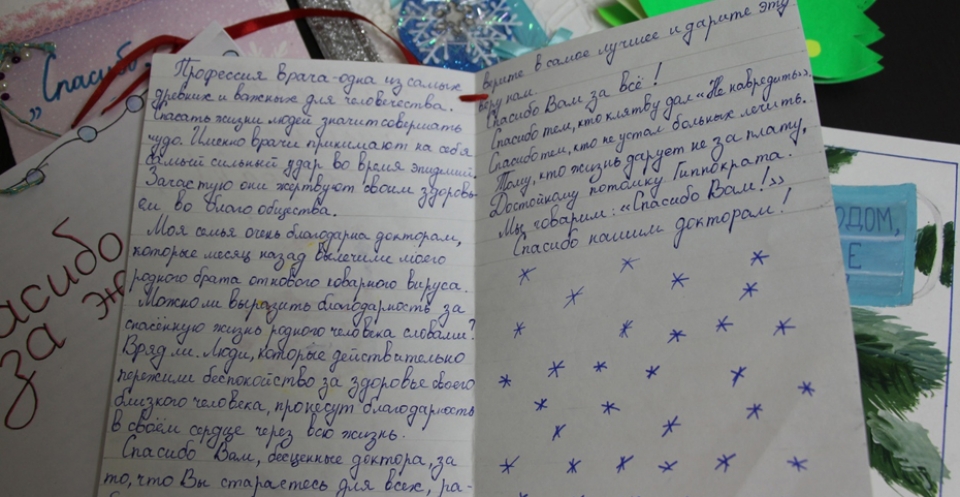 „Спасибо
Профессия врача-одна из самых
древних и важных для человечества.
Спасать жизни людей значит совершать
чудо. Именно врачи принимают на себя
самый сильный удар во время эпидемий.
Зачастую они жертвуют своим здоровь-
ем во благо общества.
Моя семья очень благодарна докторам,
которые месяц назад вылечили моего
родного брата от нового коварного вируса.
Можно ли выразить благодарность за
спасённую жизнь родного человека словами?
Вряд ли. Люди, которые действительно
пережили беспокойство за здоровье своего
близкого человека, пронесут благодарность
в своём сердце через всю жизнь.
Спасибо Вам, бесценные доктора, за
то, что Вы стараетесь для всех, ра-
верите в самое лучшее и дарите эту
веру нам.
Спасибо Вам за всё!
Спасибо тем, кто клятву дал «Не навредить»,
Спасибо тем, кто не устал больных лечить.
Тому, кто жизнь дарует не за плату,
Достойному потомку Гиппократа.
Мы говорим: «Спасибо Вам!»
Спасибо нашим докторам!
асибо
за
ОДОМ,
Е